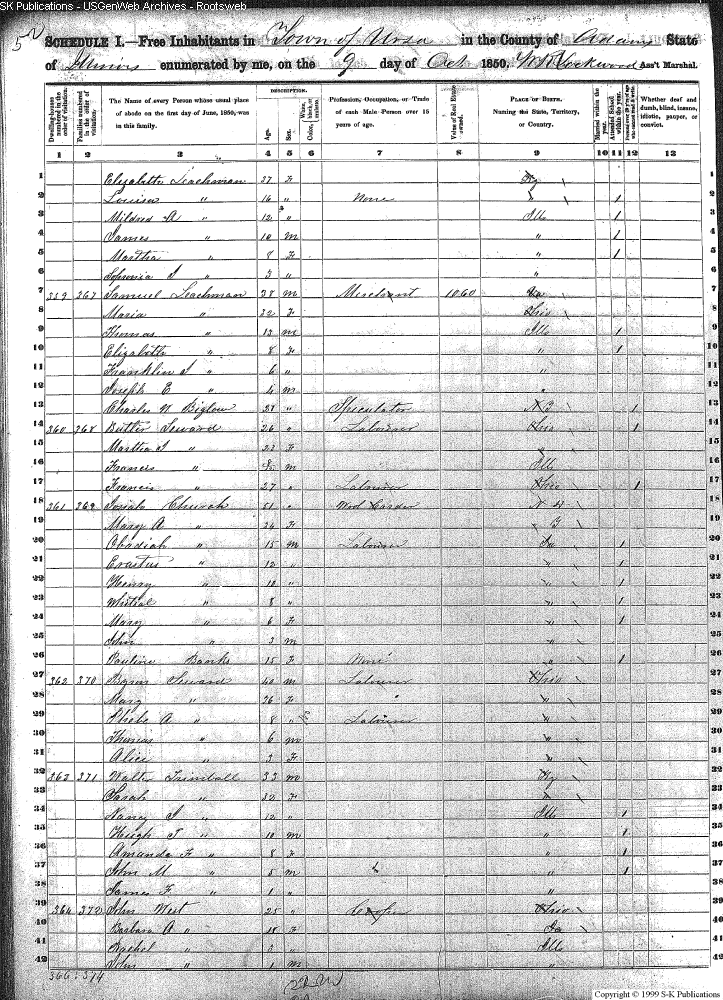 SK Publications - USGenWeb Archives - Rootsweb
SCHEDULE I.—Free Inhabitants in Town of Ursa in the County of Adams State
of Illinois enumerated by me, on the 9 day of Oct 1850. Lockwood Ass't Marshal.
DESCRIPTION.
Dwelling-houses numbered in the order of visitation.
Families numbered in the order of visitation.
The Name of every Person whose usual place of abode on the first day of June, 1850, was in this family.
Age.
Sex.
Color, White, black, or mulatto.
Profession, Occupation, or Trade of each Male Person over 15 years of age.
Value of Real Estate owned.
PLACE OF BIRTH. Naming the State, Territory, or Country.
Married within the year.
Attended School within the year.
Whether deaf and dumb, blind, insane, idiotic, pauper, or convict.
1 2 3 4 5 6 7 8 9 10 11 12 13
1 Elizabeth Leachman 37 F Ky 1
2 Louisa " 16 " None 1 2
3 Mildred A " 12 " Ills 1 3
4 James " 10 m " 1 4
5 Martha " 8 F " 1 5
6 " 3 " " 6
7 359 367 Samuel Leachman 38 m Merchant 1060 Va 7
8 Maria " 32 F Ohio 8
9 Thomas " 13 m Ills 1 9
10 Elizabeth " 8 F " 1 10
11 Franklin " 6 " " 11
12 Joseph E " 4 m " 12
13 Charles Biglow " Speculator 1 13
14 360 368 Butler Seward 26 " Labourer Ohio 1 14
15 Martha " 22 F 15
16 Francis " m Ills 16
17 Francis " 27 " Labourer Ohio 1 17
18 361 369 Josiah Church 51 " Wool Carder N Y 18
19 Mary A " 34 F 19
20 Obadiah " 15 m Labourer 1 20
21 Erastus " 12 " " 1 21
22 Henry " 10 " " 1 22
23 " 8 " " 1 23
24 Mary " 6 F " 1 24
25 John " 3 m " 25
26 Pauline Banks 15 F None " 1 26
27 362 370 Byron Seward 40 m Labourer Ohio 27
28 Mary " 36 F " " 28
29 Phebe A " 8 " Labourer " 29
30 Thomas " 6 m " 30
31 Alice " 3 F " 31
32 363 371 Trimball 33 m Ky 32
33 Sarah " 32 F " 33
34 Nancy J " 12 " Ills 1 34
35 Hugh T " 10 m " 1 35
36 Amanda F " 8 F " 1 36
37 John M " 5 m " 1 37
38 James F " 1 " " 38
39 364 372 John West 25 " Ohio 39
40 Barbara A " 18 F 40
41 Rachel " " Ills 41
42 John " 1 m " 42
366 : 374
Copyright © 1999 S-K Publications